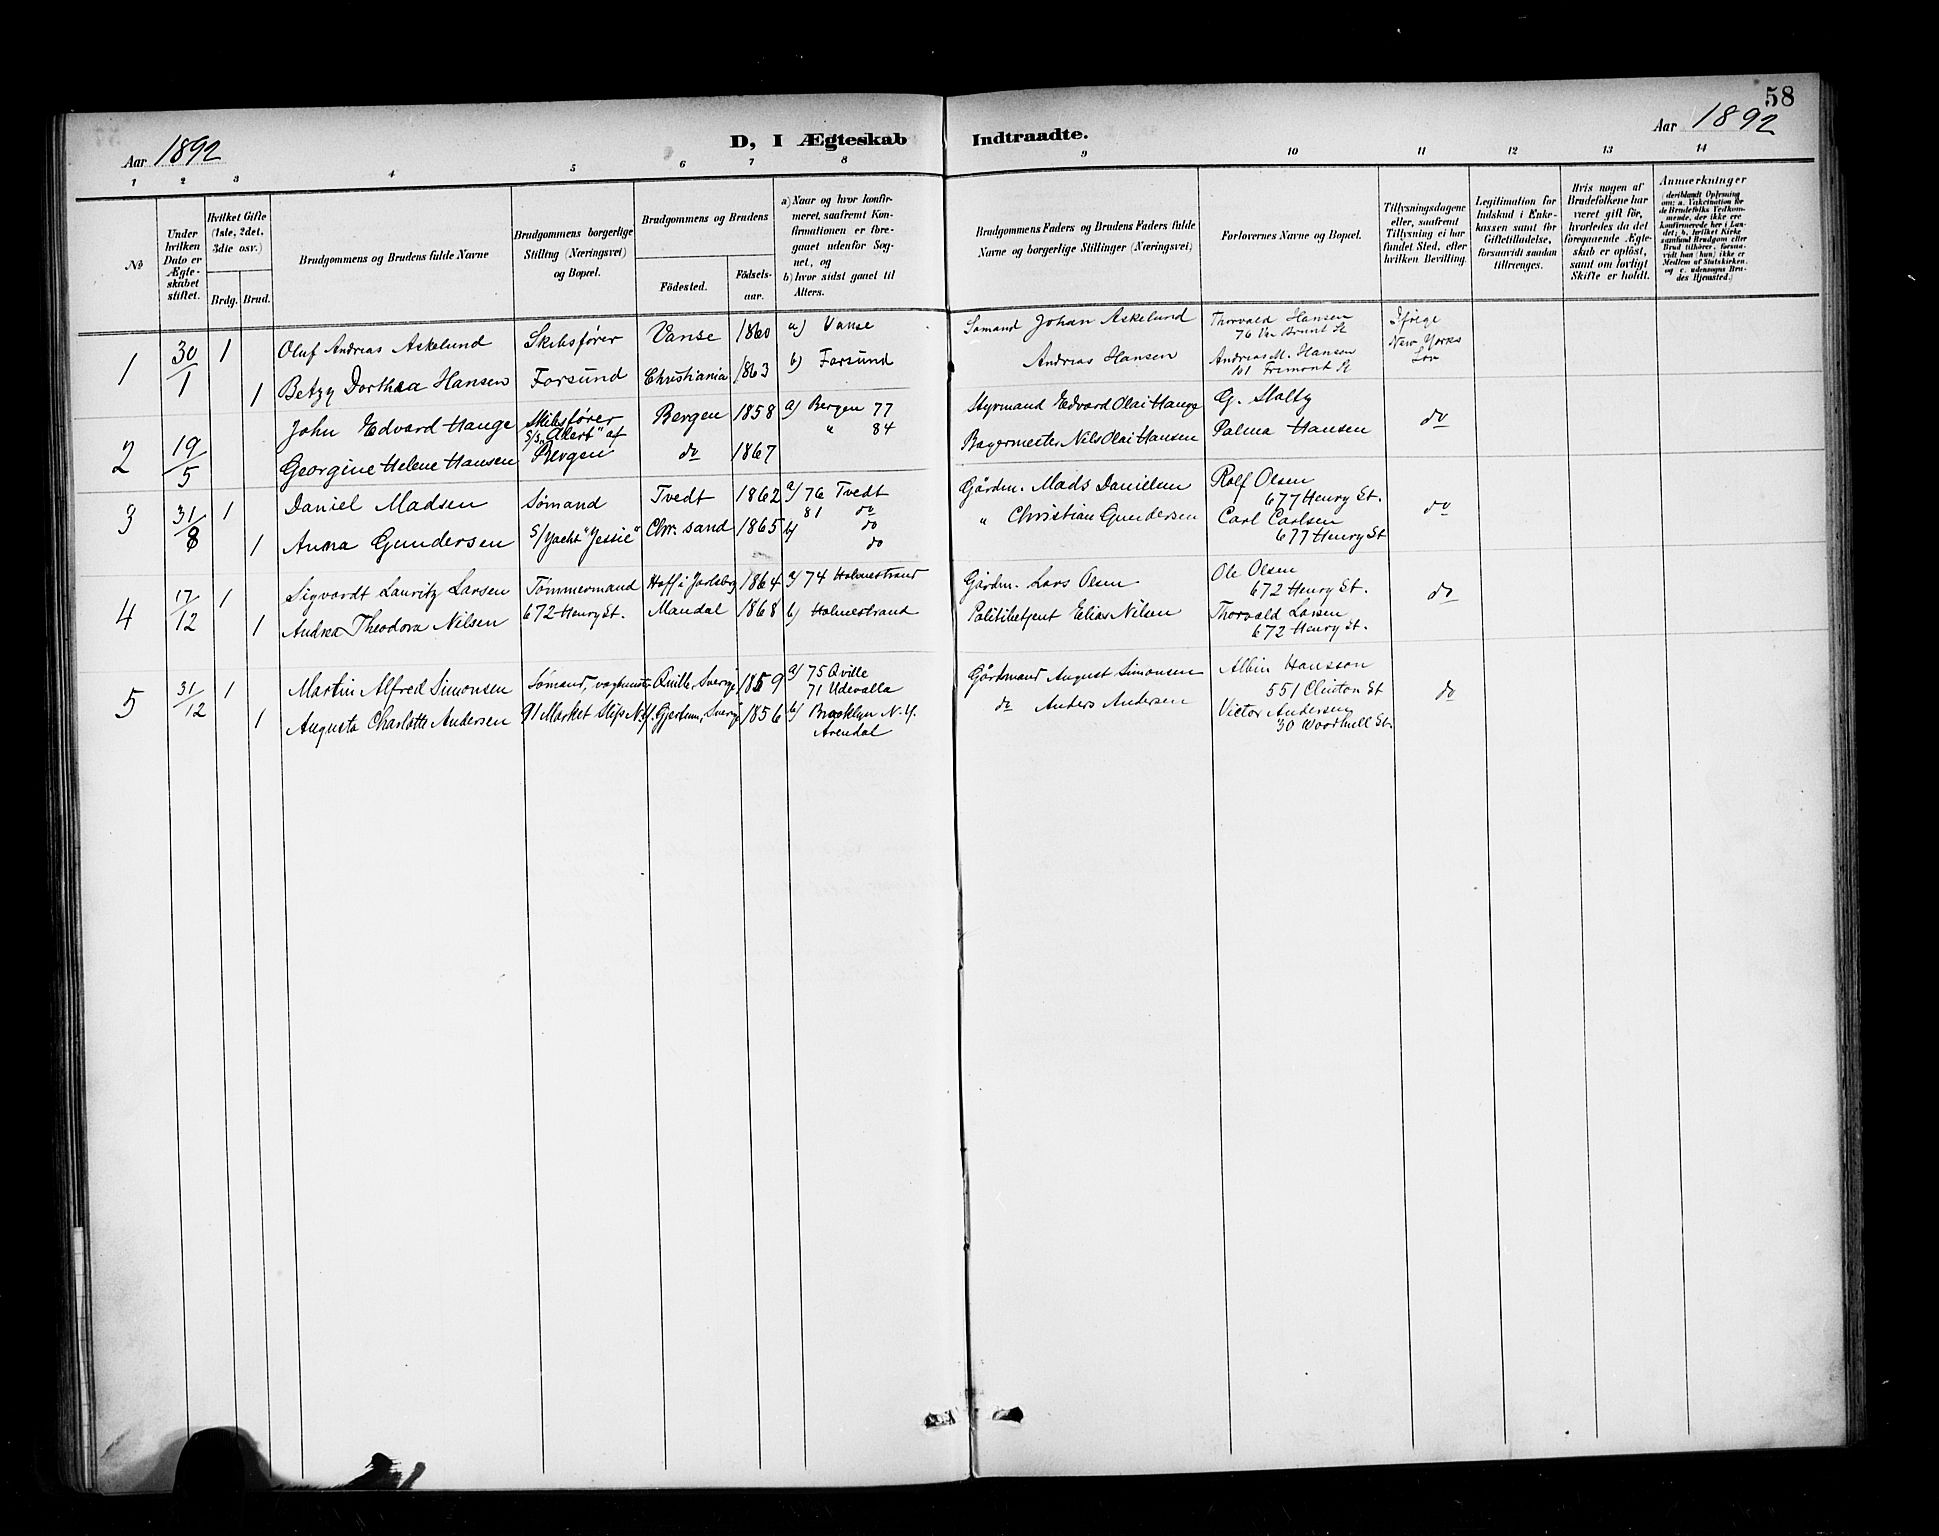 58
Aar 1892
D, I Ægteskab Indtraadte.
Aar 1892
1 2 3 4 5 6 7 8 9 10 11 12 13 14
№
Under
hvilken
Dato er
Ægte-
skabet
stiftet.
Hvilket Gifte
(1ste, 2det.
3die osv.)
Brdg. Brud.
Brudgommens og Brudens fulde Navne
Brudgommens borgerlige
Stilling (Næringsvei)
og Bopæl.
Brudgommens og Brudens
Födested.
Födsels-
aar.
a) Naar og hvor konfir-
meret, saafremt Kon-
firmationen er fore-
gaaet udenfor Sog-
net, og
b) hvor sidst gaaet til
Alters.
Brudgommens Faders og Brudens Faders fulde
Navne og borgerlige Stillinger (Næringsvei)
Forlovernes Navne og Bopæl.
Tillysningsdagene
eller, saafremt
Tillysning ei har
fundet Sted, efter
hvilken Bevilling.
Legitimation for
Indskud i Enke-
kassen samt for
Giftetilladelse,
forsaavidt saadan
tiltrænges.
Hvis nogen af
Brudefolkene har
været gift för,
hvorledes da det
foregaaende Ægte-
skab er oplöst,
samt om lovligt
Skifte er holdt.
Anmærkninger
(deriblandt Oplysning
om: a. Vakcination for
de Brudefolks Vedkom-
mende, der ikke ere
konfirmerede her i Lan-
det; b. hvilket Kirke
samfund Brudgom eller
Brud tilhörer, forsaa-
vidt han (hun) ikke er
Medlem af Statskirken,
og c. udensogns Bru-
des Hjemsted.)
1 30/1 1 Oluf Andreas Askelund Skibsfører Vanse 1860 a) Vanse Sømand Johan Askelund Thorvald Hansen Ifølge
76 Van Brunt St New Yorks
1 Betzy Dorthea Hansen Farsund Christiania 1863 b) Farsund Andreas Hansen Andreas M. Hansen Lov
101 Tremont St
2 19/5 John Edvard Hauge Skibsfører Bergen 1858 a) Bergen 77 Styrmand Edvard Olai Hauge G. Stalty do
S/S "Albert" af " 84
Georgine Helene Hansen Bergen do 1867 Bagermester Nils Olai Hansen Palma Hansen
3 31/8 1 Daniel Madsen Sømand Tvedt 1862 a) 76 Tvedt Gårdm. Mads Danielsen Rolf Olsen do
81 do 677 Henry St.
1 Anna Gundersen S/Yacht "Jessie" Chr. sand 1865 b) do " Christian Gundersen Carl Carlsen
do 677 Henry St
4 17/12 1 Sigvardt Lauritz Larsen Tømmermand Hoff i Jarlsberg 1864 a) 74 Holmestrand Gårdm. Lars Olsen Ole Olsen do
672 Henry St.
1 Andrea Theodora Nilsen 672 Henry St. Mandal 1868 b) Holmestrand Politibetjent Elias Nilsen Thorvald Larsen
672 Henry St.
5 31/12 1 Martin Alfred Simonsen Sømand, Qville, Sverige 1859 a) 75 Qville Gårdmand August Simonsen Albin Hansson do
71 Udevalla 551 Clinton St
1 Augusta Charlotte Andersen 91 Market Slip N.Y. Gjerdum, Sverig 1856 b) Brooklyn N.Y. do Anders Andersen Victor Andersen
Arendal 30 Woodhull St.